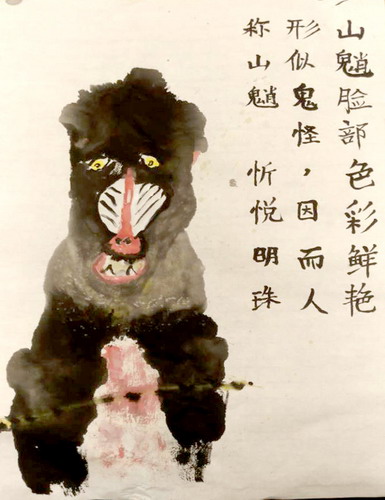 山魈脸部色彩鲜艳
形似鬼怪，因而人
称山魈 忻悦明珠